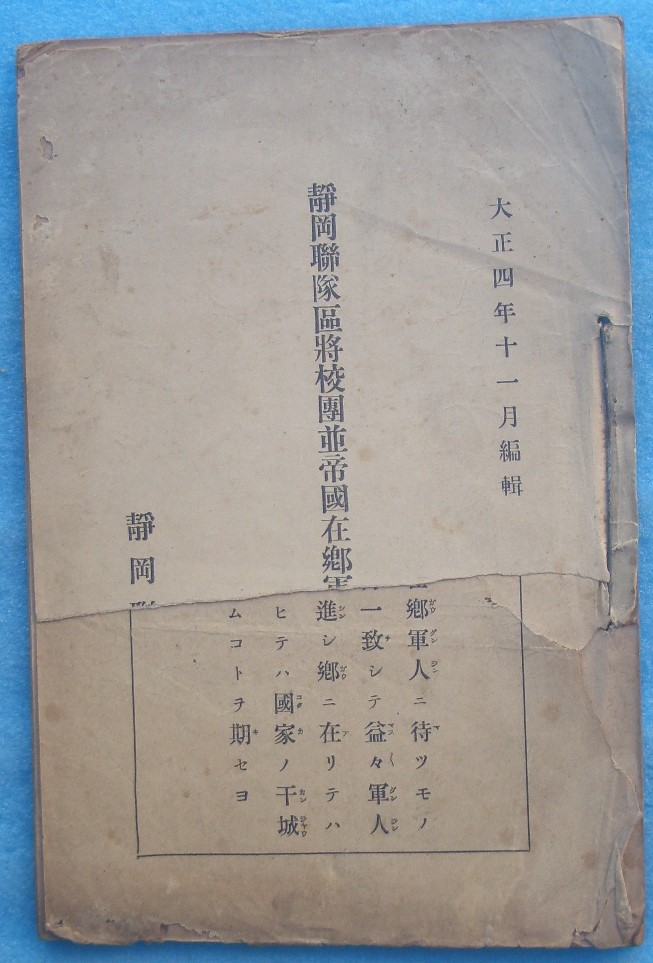 大正四年十一月編輯
靜岡聯隊區將校團並帝國在鄕軍
靜岡
鄕軍人ニ待ツモノ
一致シテ益々軍人
進シ鄕ニ在リテハ
ヒテハ國家ノ干城
ムコトヲ期セヨ